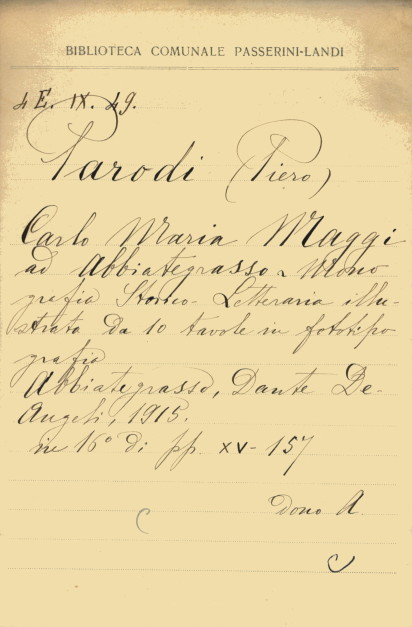 BIBLIOTECA COMUNALE PASSERINI-LANDI
4 E. IX. 49.
Parodi (Piero)
Carlo Maria Maggi
ad Abbiategrasso - Mono
grafia Storico-Letteraria illu-
strata da 10 tavole in fototipo
grafia
Abbiategrasso, Dante De-
Angeli, 1915.
in 16° di pp. XV-157
Dono A.